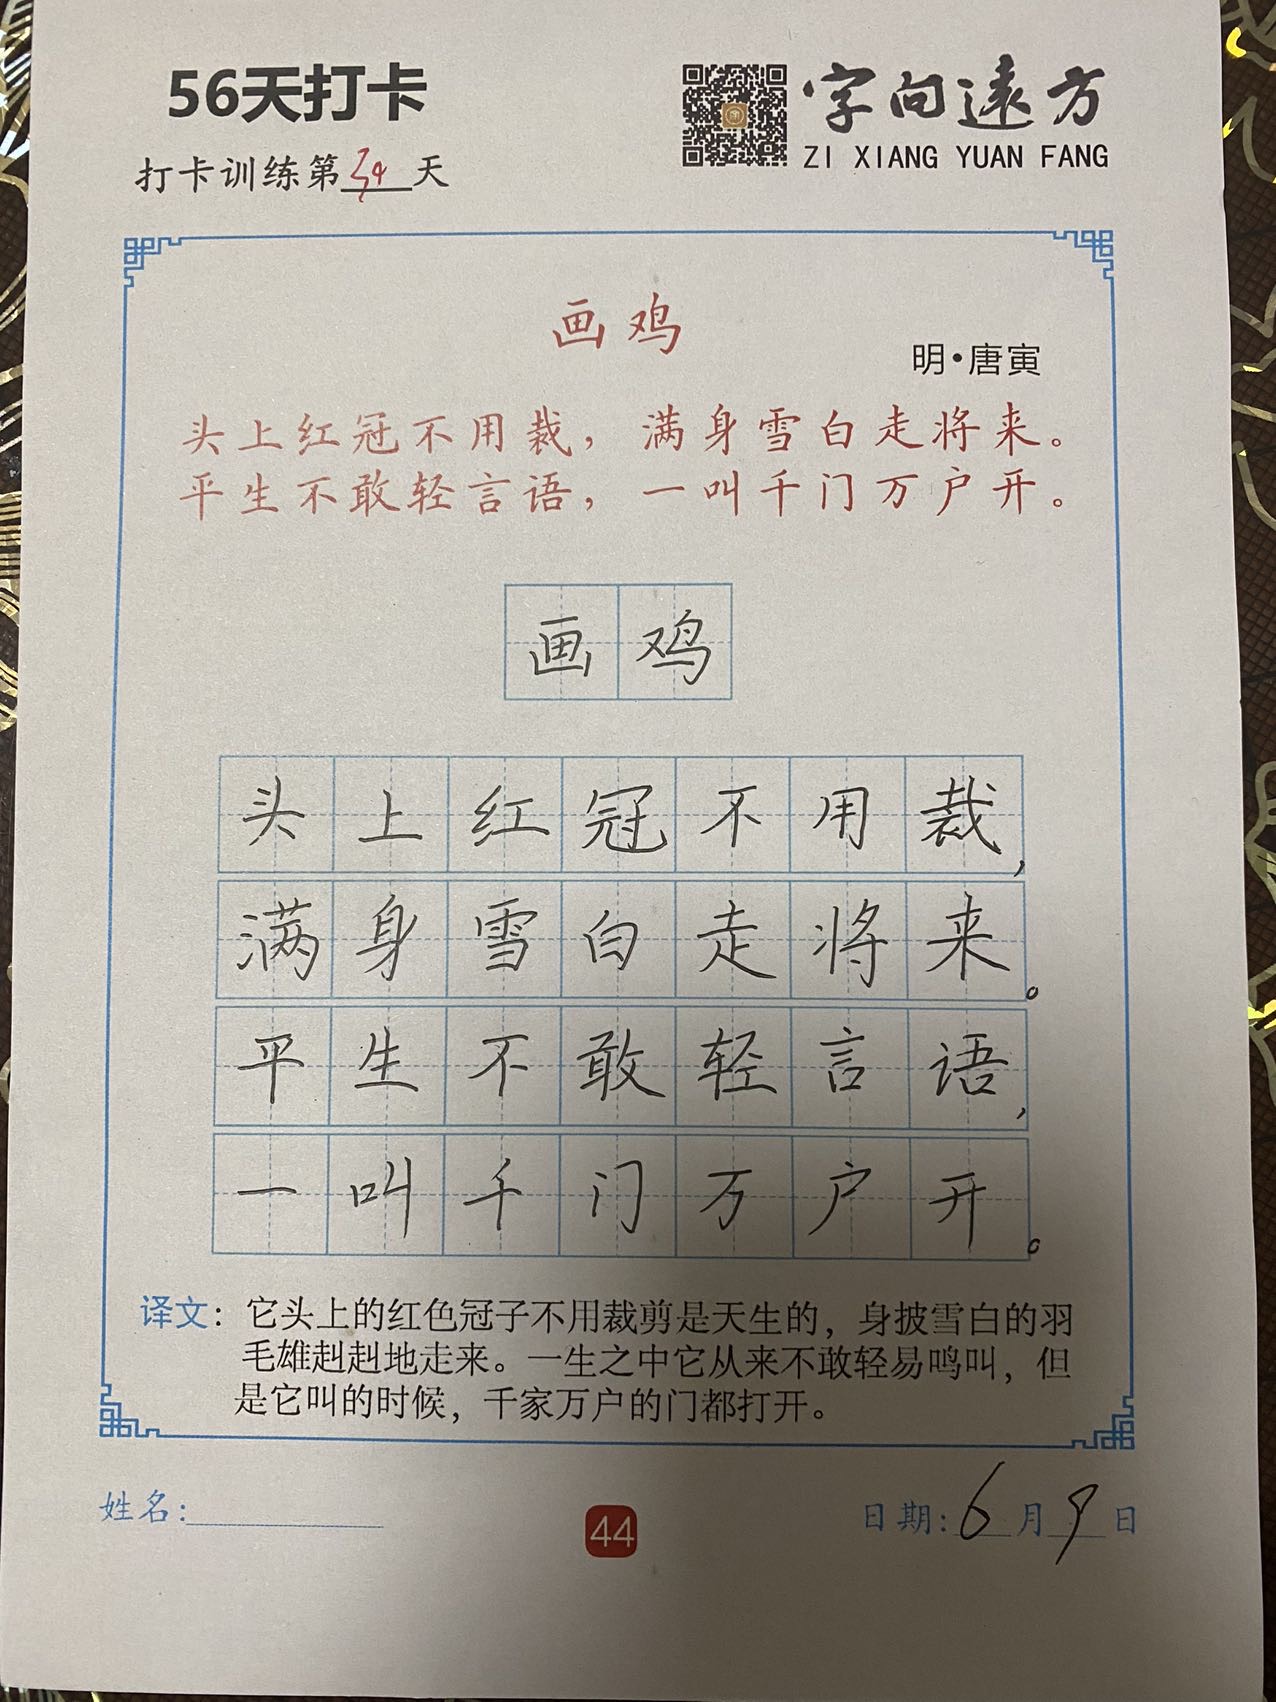 56天打卡
字向遠方
ZI XIANG YUAN FANG
打卡训练第34天
画鸡
明·唐寅
头上红冠不用裁，满身雪白走将来。
平生不敢轻言语，一叫千门万户开。
画鸡
头上红冠不用裁，
满身雪白走将来。
平生不敢轻言语，
一叫千门万户开。
译文：它头上的红色冠子不用裁剪是天生的，身披雪白的羽
毛雄赳赳地走来。一生之中它从来不敢轻易鸣叫，但
是它叫的时候，千家万户的门都打开。
姓名：
44
日期：6月9日